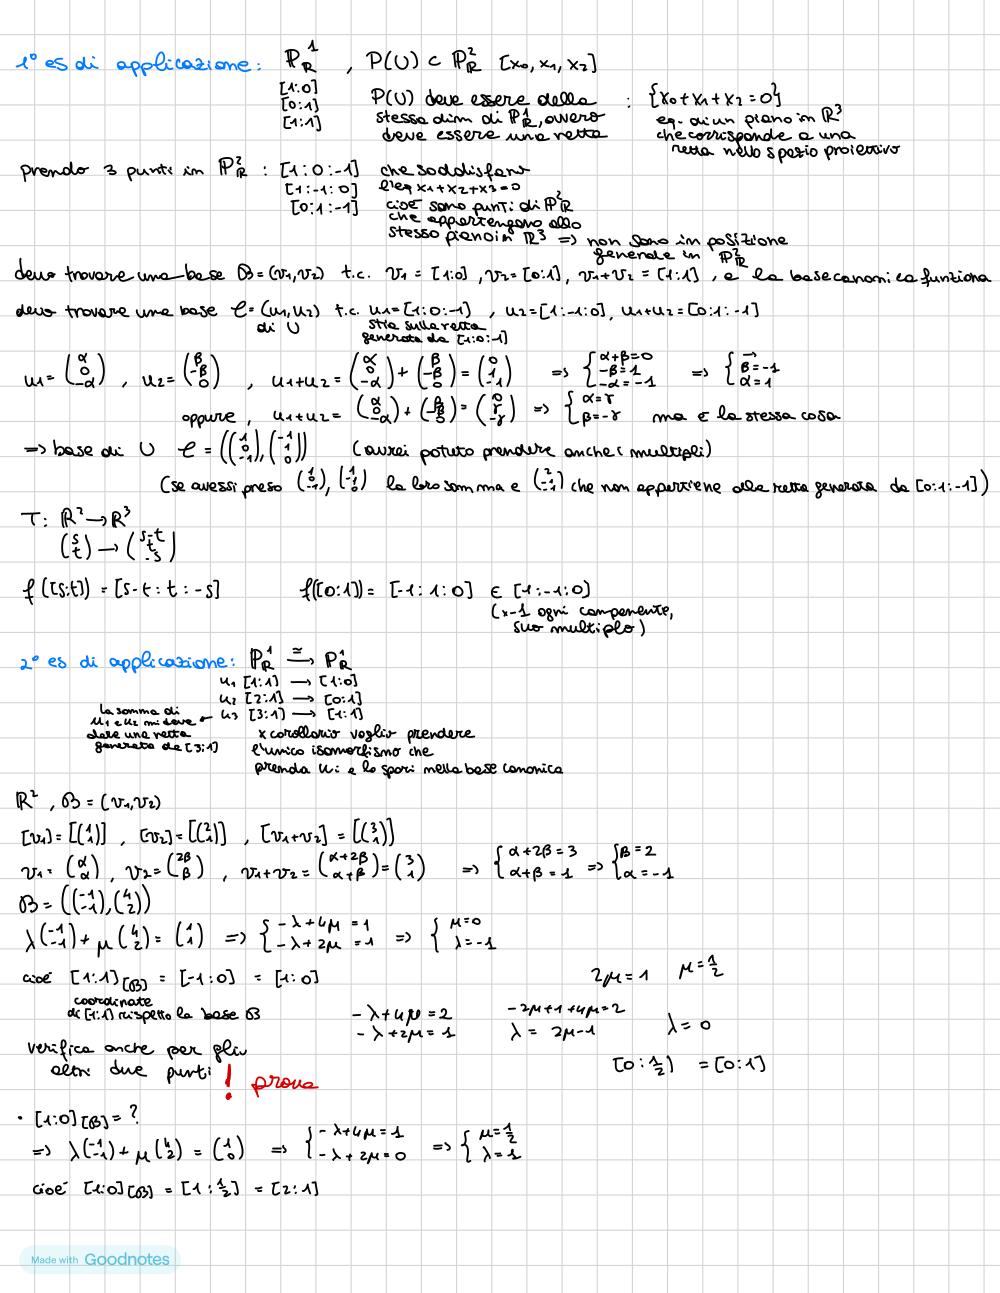 1° es di applicazione: ℙ¹_ℝ , P(U) ⊂ ℙ²_ℝ [x₀, x₁, x₂]
[1:0]
[0:1]
[1:1]
P(U) deve essere della : {x₀+x₁+x₂=0}
stessa dim di ℙ¹_ℝ, ovvero
deve essere una retta
eq. di un piano in ℝ³
che corrisponde a una
retta nello spazio proiettivo
prendo 3 punti in ℙ²_ℝ : [1:0:-1] che soddisfano
[1:-1:0] l'eq x₁+x₂+x₃=0
[0:1:-1] cioè sono punti di ℙ²_ℝ
che appartengono allo
stesso piano in ℝ³ => non sono in posizione
generale in ℙ²_ℝ
devo trovare una base B=(v₁,v₂) t.c. v₁=[1:0], v₂=[0:1], v₁+v₂=[1:1], e la base canonica funziona
devo trovare una base C=(u₁,u₂) t.c. u₁=[1:0:-1] , u₂=[1:-1:0], u₁+u₂=[0:1:-1]
di U stia sulla retta
generata da [1:0:-1]
u₁=(α 0 -α) , u₂=(β -β 0) , u₁+u₂=(α 0 -α)+(β -β 0)=(0 1 -1) => {α+β=0 -β=1 -α=-1 => {→ β=-1 α=1
oppure, u₁+u₂=(α 0 -α)+(β -β 0)=(0 γ -γ) => {α=γ β=-γ ma è la stessa cosa
=> base di U C=((1 0 -1),(-1 1 0)) (avrei potuto prendere anche i multipli)
(se avessi preso (1 0 -1), (1 -1 0) la loro somma è (2 -1 -1) che non appartiene alla retta generata da [0:1:-1])
T: ℝ²→ℝ³
(s t) → (s-t t -s)
f([s:t]) = [s-t : t : -s] f([0:1]) = [-1:1:0] ∈ [1:-1:0]
(x-1 ogni componente,
suo multiplo)
2° es di applicazione: ℙ¹_ℝ ≅→ ℙ¹_ℝ
u₁ [1:1] → [1:0]
u₂ [2:1] → [0:1]
u₃ [3:1] → [1:1]
la somma di
u₁ e u₂ mi deve
dare una retta
generata da [3:1]
x corollario voglio prendere
l'unico isomorfismo che
prenda uᵢ e lo sposti nella base canonica
ℝ² , B=(v₁,v₂)
[v₁]=[(1 1)] , [v₂]=[(2 1)] , [v₁+v₂]=[(3 1)]
v₁=(α α) , v₂=(2β β) , v₁+v₂=(α+2β α+β)=(3 1) => {α+2β=3 α+β=1 => {β=2 α=-1
B=((-1 -1),(4 2))
λ(-1 -1)+μ(4 2)=(1 1) => {-λ+4μ=1 -λ+2μ=1 => {μ=0 λ=-1
cioè [1:1]_[B] = [-1:0] = [1:0] 2μ=1 μ=1/2
coordinate
di [1:1] rispetto la base B
-λ+4μ=2 -2μ+1+4μ=2
-λ+2μ=1 λ=2μ-1 λ=0
verifica anche per gli
altri due punti ! prova
[0:1/2] = [0:1]
· [1:0]_[B]=?
=> λ(-1 -1)+μ(4 2)=(1 0) => {-λ+4μ=1 -λ+2μ=0 => {μ=1/2 λ=1
cioè [1:0]_[B] = [1:1/2] = [2:1]
Made with Goodnotes